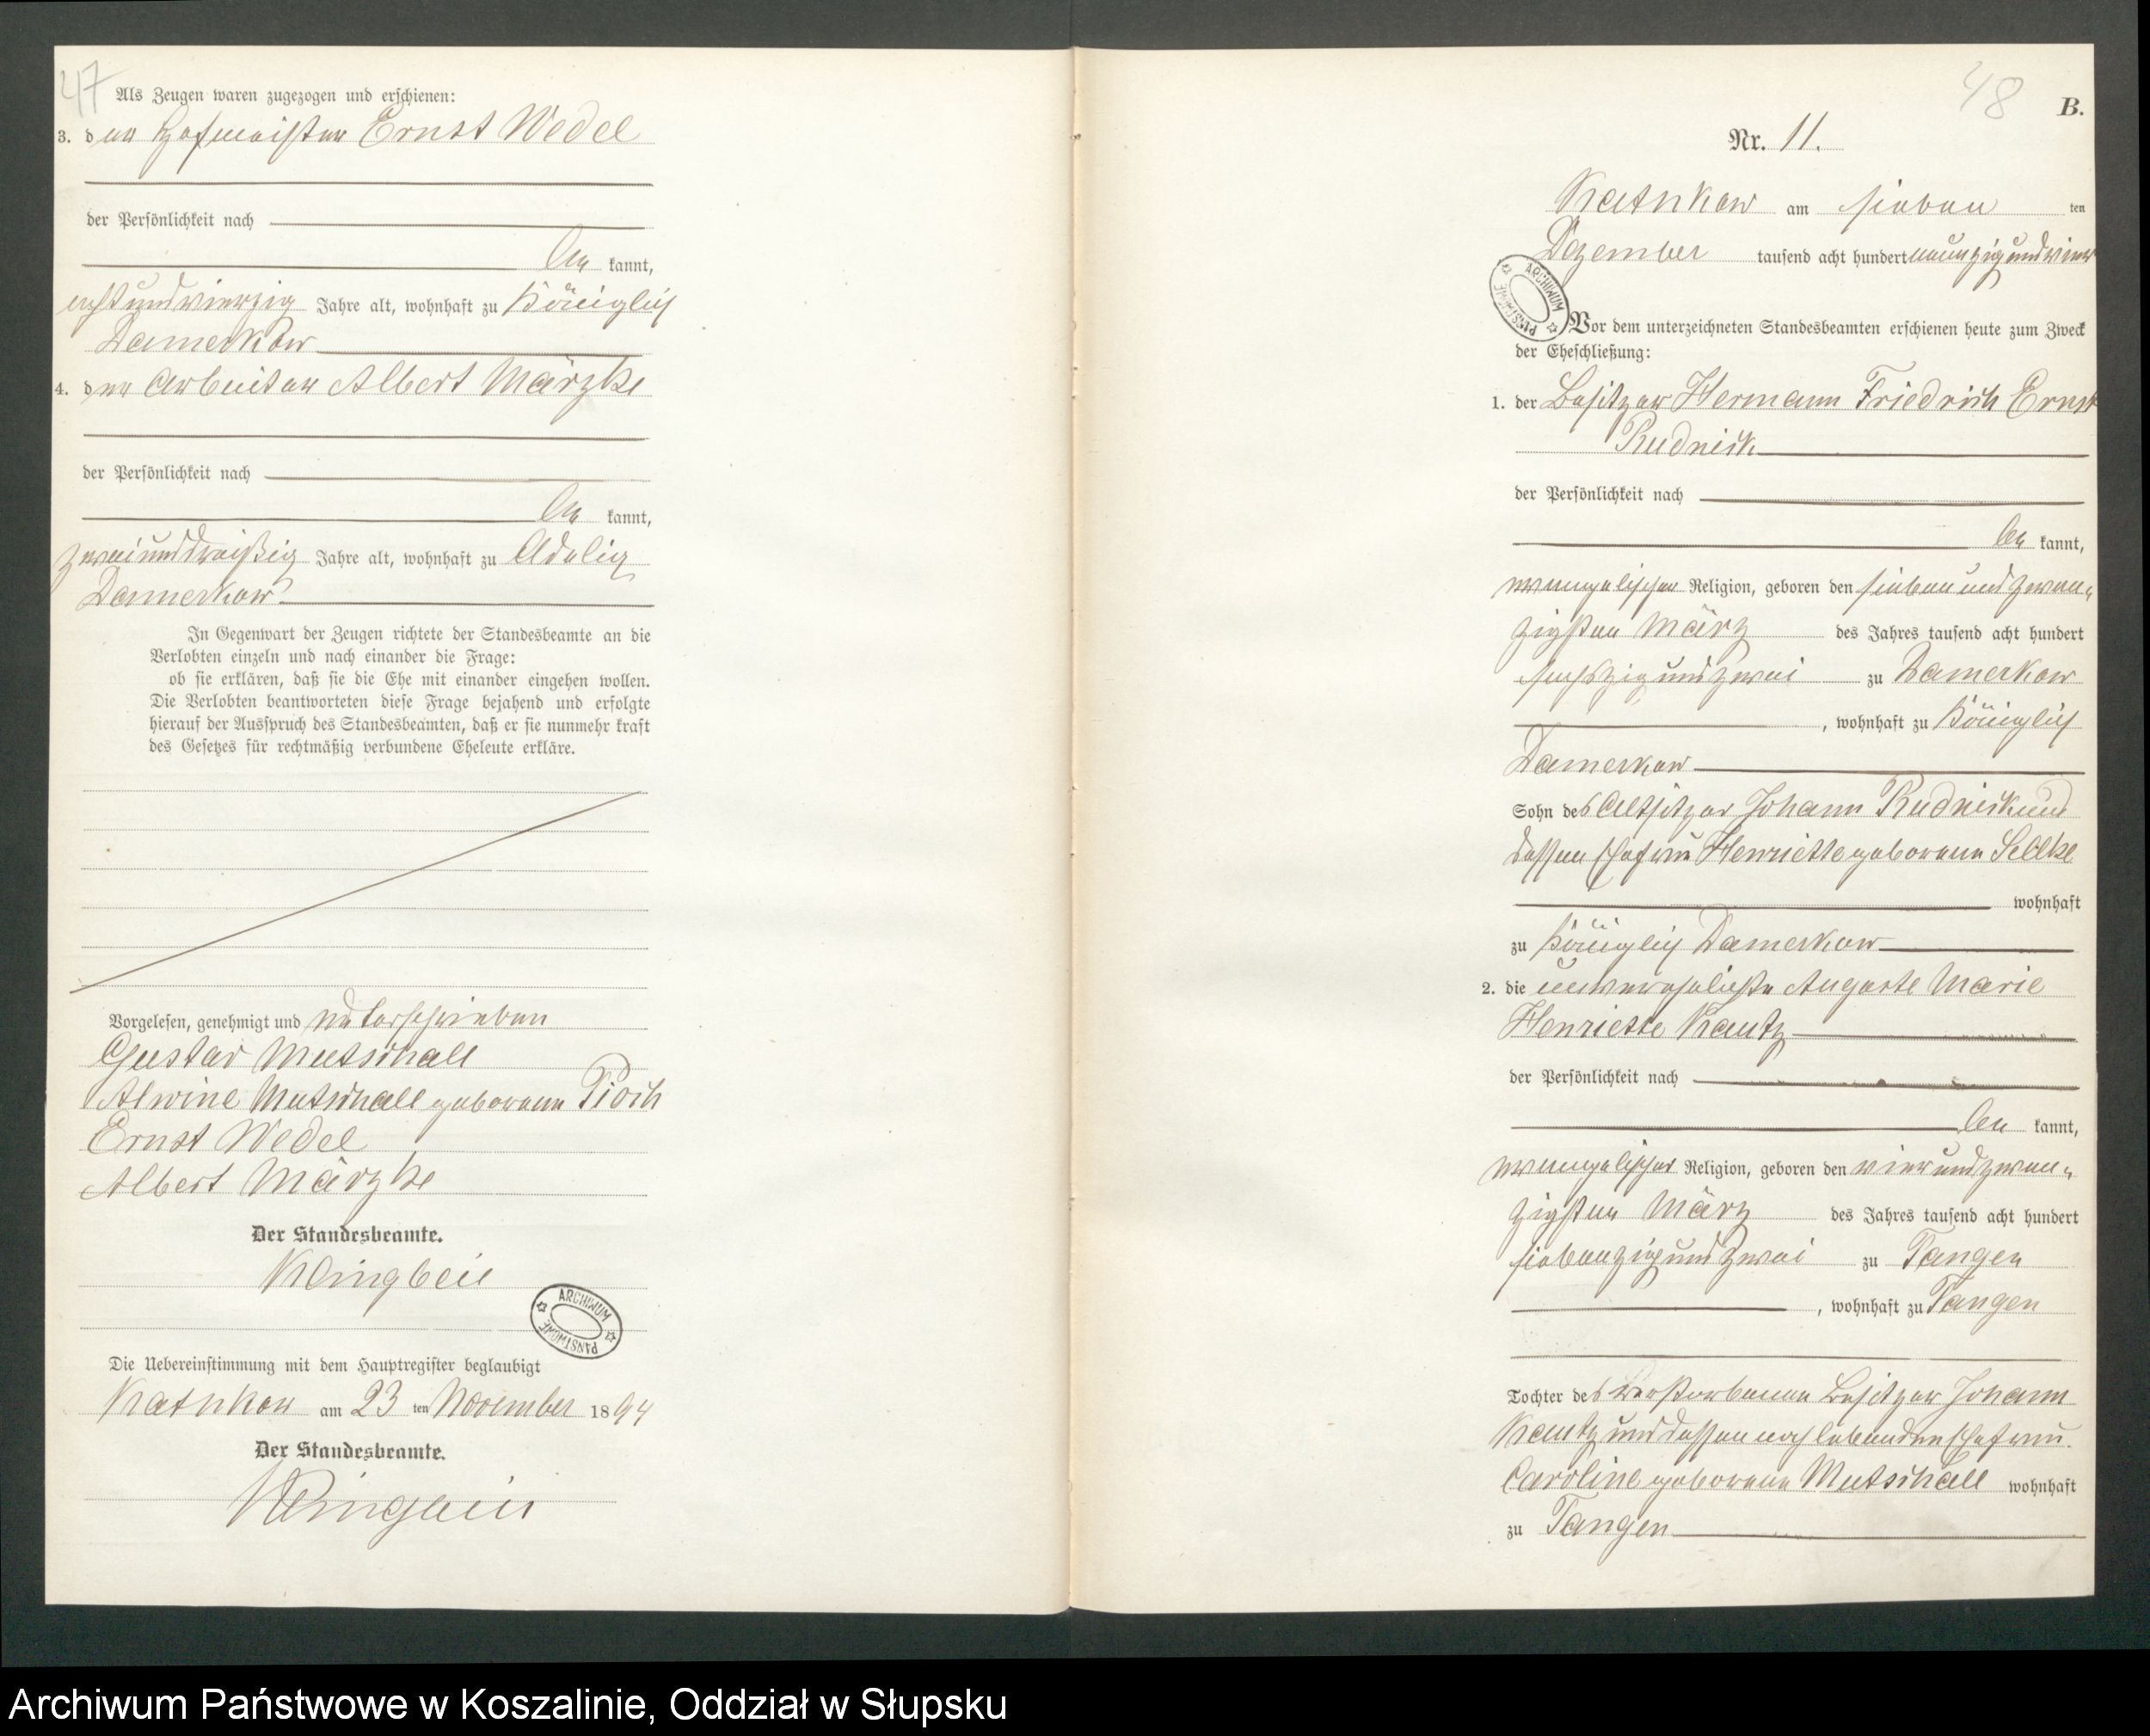 47
Als Zeugen waren zugezogen und erschienen:
3. der Hofmeister Ernst Wedel
der Persönlichkeit nach
be kannt,
achtundvierzig Jahre alt, wohnhaft zu Königlich
Damerkow
4. der Arbeiter Albert Märzke
der Persönlichkeit nach
be kannt,
zweiunddreißig Jahre alt, wohnhaft zu Adelig
Damerkow
In Gegenwart der Zeugen richtete der Standesbeamte an die
Verlobten einzeln und nach einander die Frage:
ob sie erklären, daß sie die Ehe mit einander eingehen wollen.
Die Verlobten beantworteten diese Frage bejahend und erfolgte
hierauf der Ausspruch des Standesbeamten, daß er sie nunmehr kraft
des Gesetzes für rechtmäßig verbundene Eheleute erkläre.
Vorgelesen, genehmigt und unterschrieben
Gustav Mutschall
Alwine Mutschall geborene Pioch
Ernst Wedel
Albert Märzke
Der Standesbeamte.
Klingbeil
ARCHIWUM PAŃSTWOWE
Die Uebereinstimmung mit dem Hauptregister beglaubigt
Katnkow am 23 ten November 1894
Der Standesbeamte.
Klingbeil
48
B.
Nr. 11.
Katnkow am sieben ten
Dezember tausend acht hundert neunzigundvier
ARCHIWUM PAŃSTWOWE
Vor dem unterzeichneten Standesbeamten erschienen heute zum Zweck
der Eheschließung:
1. der Besitzer Hermann Friedrich Ernst
Rudnick
der Persönlichkeit nach
be kannt,
evangelischer Religion, geboren den siebenundzwan-
zigsten März des Jahres tausend acht hundert
sechszigundzwei zu Damerkow
, wohnhaft zu Königlich
Damerkow
Sohn des Altsitzer Johann Rudnick und
dessen Ehefrau Henriette geborene Sellke
wohnhaft
zu Königlich Damerkow
2. die unverehelichte Auguste Marie
Henriette Kautz
der Persönlichkeit nach
be kannt,
evangelischer Religion, geboren den vierundzwan-
zigsten März des Jahres tausend acht hundert
siebenzigundzwei zu Tangen
, wohnhaft zu Tangen
Tochter des verstorbenen Besitzer Johann
Kautz und dessen noch lebenden Ehefrau
Caroline geborene Mutschall wohnhaft
zu Tangen
Archiwum Państwowe w Koszalinie, Oddział w Słupsku